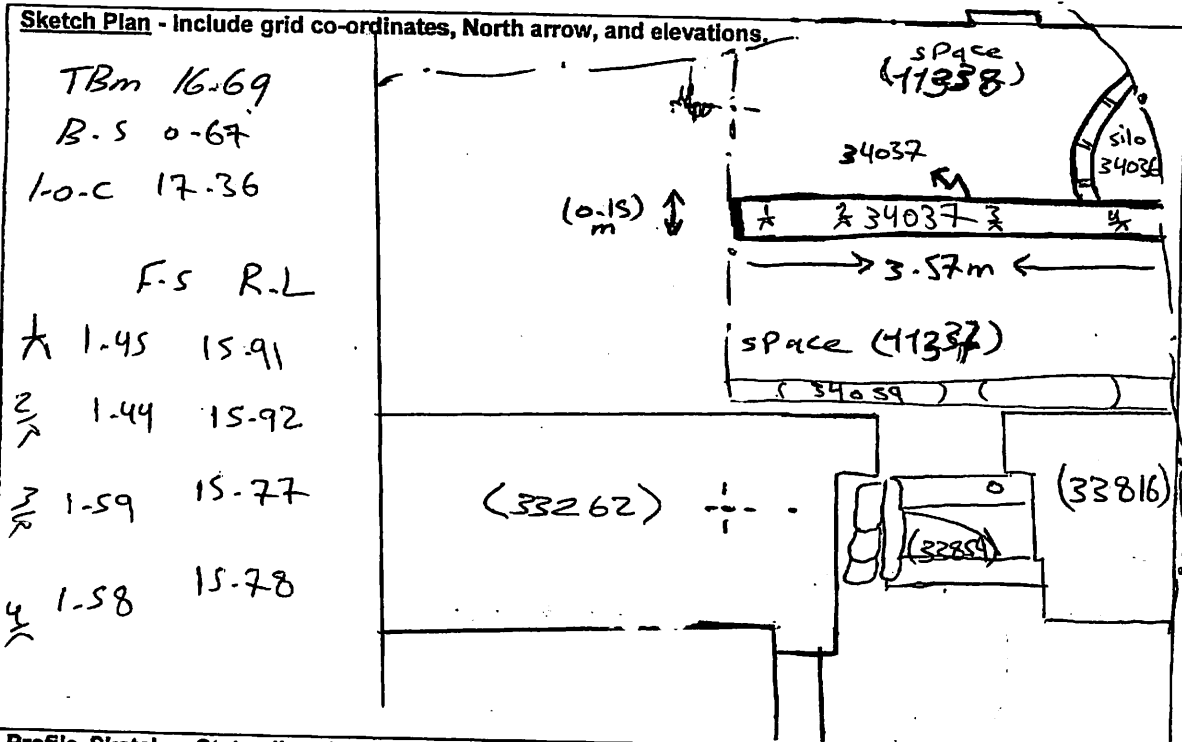 Sketch Plan - Include grid co-ordinates, North arrow, and elevations.
TBm 16.69
B.S 0-67
I-O-C 17-36
F.S R.L
1 1-45 15.91
2 1-44 15-92
3 1-59 15-77
4 1-58 15-78
space
(11338)
silo
34036
34037
(0-15)
m
1 2 34037 3 4
3-57m
space (11337)
(34059)
(33262)
(33816)
(33854)